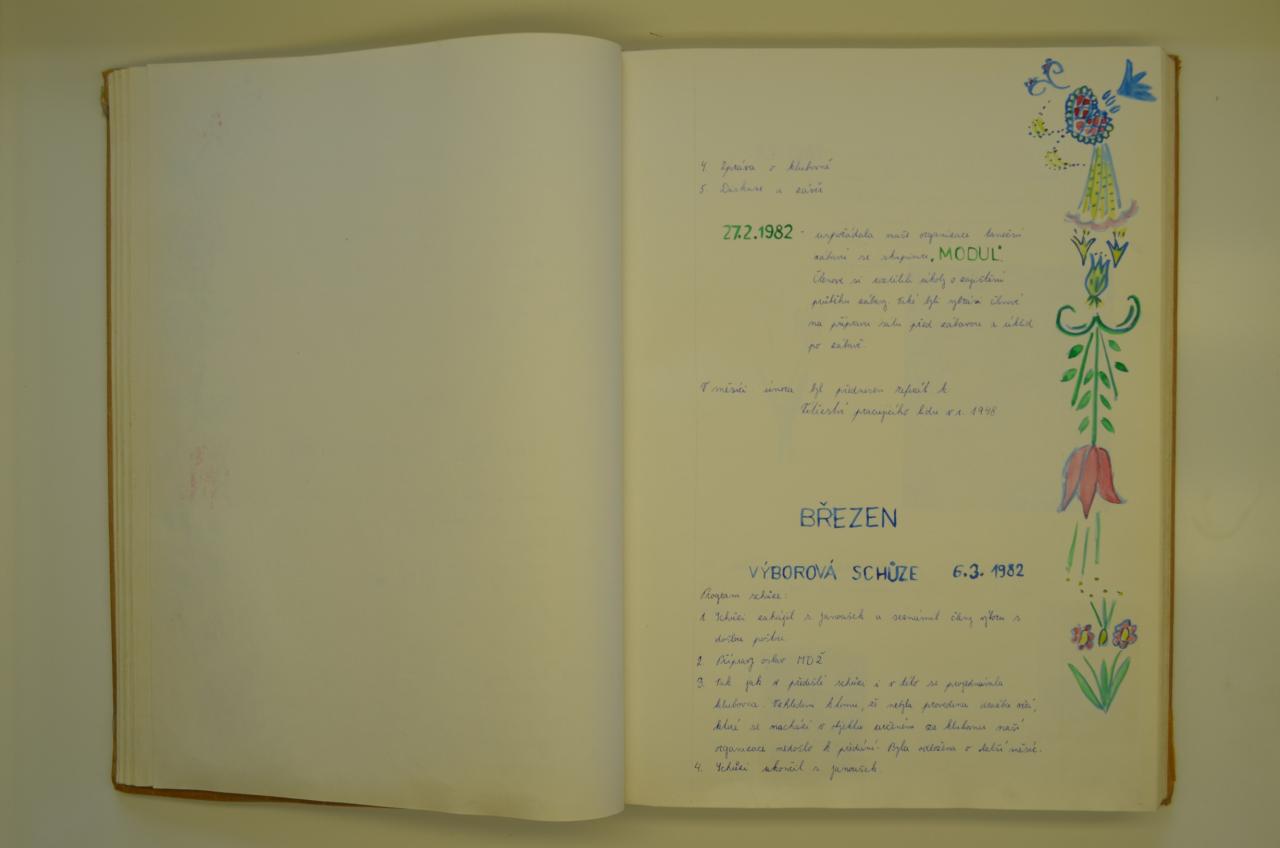 4. Zpráva o klubovně
5. Diskuse a závěr
27.2.1982 - uspořádala naše organizace taneční
zábavu se skupinou „MODUL“.
Členové si rozdělili úkoly o zajištění
průběhu zábavy. Také byli vybráni členové
na přípravu sálu před zábavou a úklid
po zábavě.
V měsíci únoru byl přednesen referát k
Vítězství pracujícího lidu v r. 1948
BŘEZEN
VÝBOROVÁ SCHŮZE 6.3.1982
Program schůze:
1. Schůzi zahájil s. Janoušek a seznámil členy výboru s
došlou poštou.
2. Přípravy oslav MDŽ
3. Tak jak v předešlé schůzi i v této se projednávala
klubovna. Vzhledem k tomu, že nebyla provedena
které se nachází v objektu určeném za klubovnu naší
organizace nedošlo k předání. Byla odložena o další měsíc.
4. Schůzi ukončil s. Janoušek.